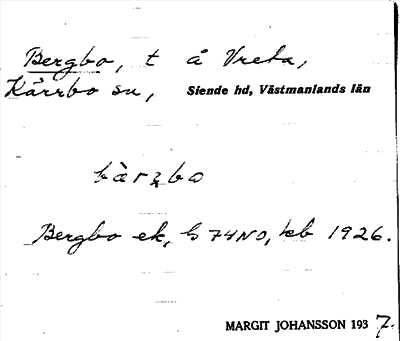 Bergbo, t å Vreta,
Kärrbo sn, Siende hd, Västmanlands län
bàrʒbo
Bergbo ek, G 74NO, kb 1926.
MARGIT JOHANSSON 1937.